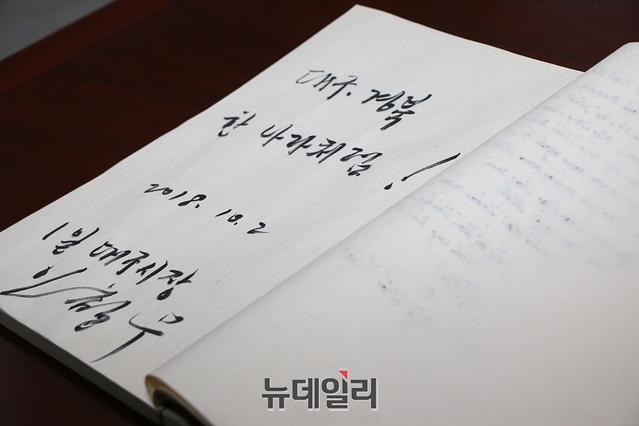 대구. 경북
한 나라처럼!
2018. 10. 2
1일 대구시장
이철우
뉴데일리